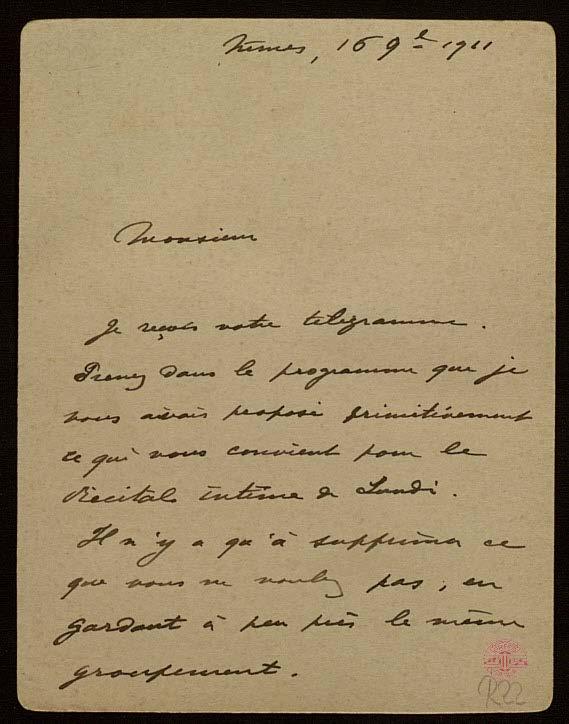 Nîmes, 16 9b 1911
Monsieur
Je reçois votre télégramme.
Prenez dans le programme que je
vous avais proposé primitivement
ce qui vous convient pour le
Récital intime de Lundi.
Il n'y a qu'à supprimer ce
que vous ne voulez pas, en
gardant à peu près le même
groupement.
R22